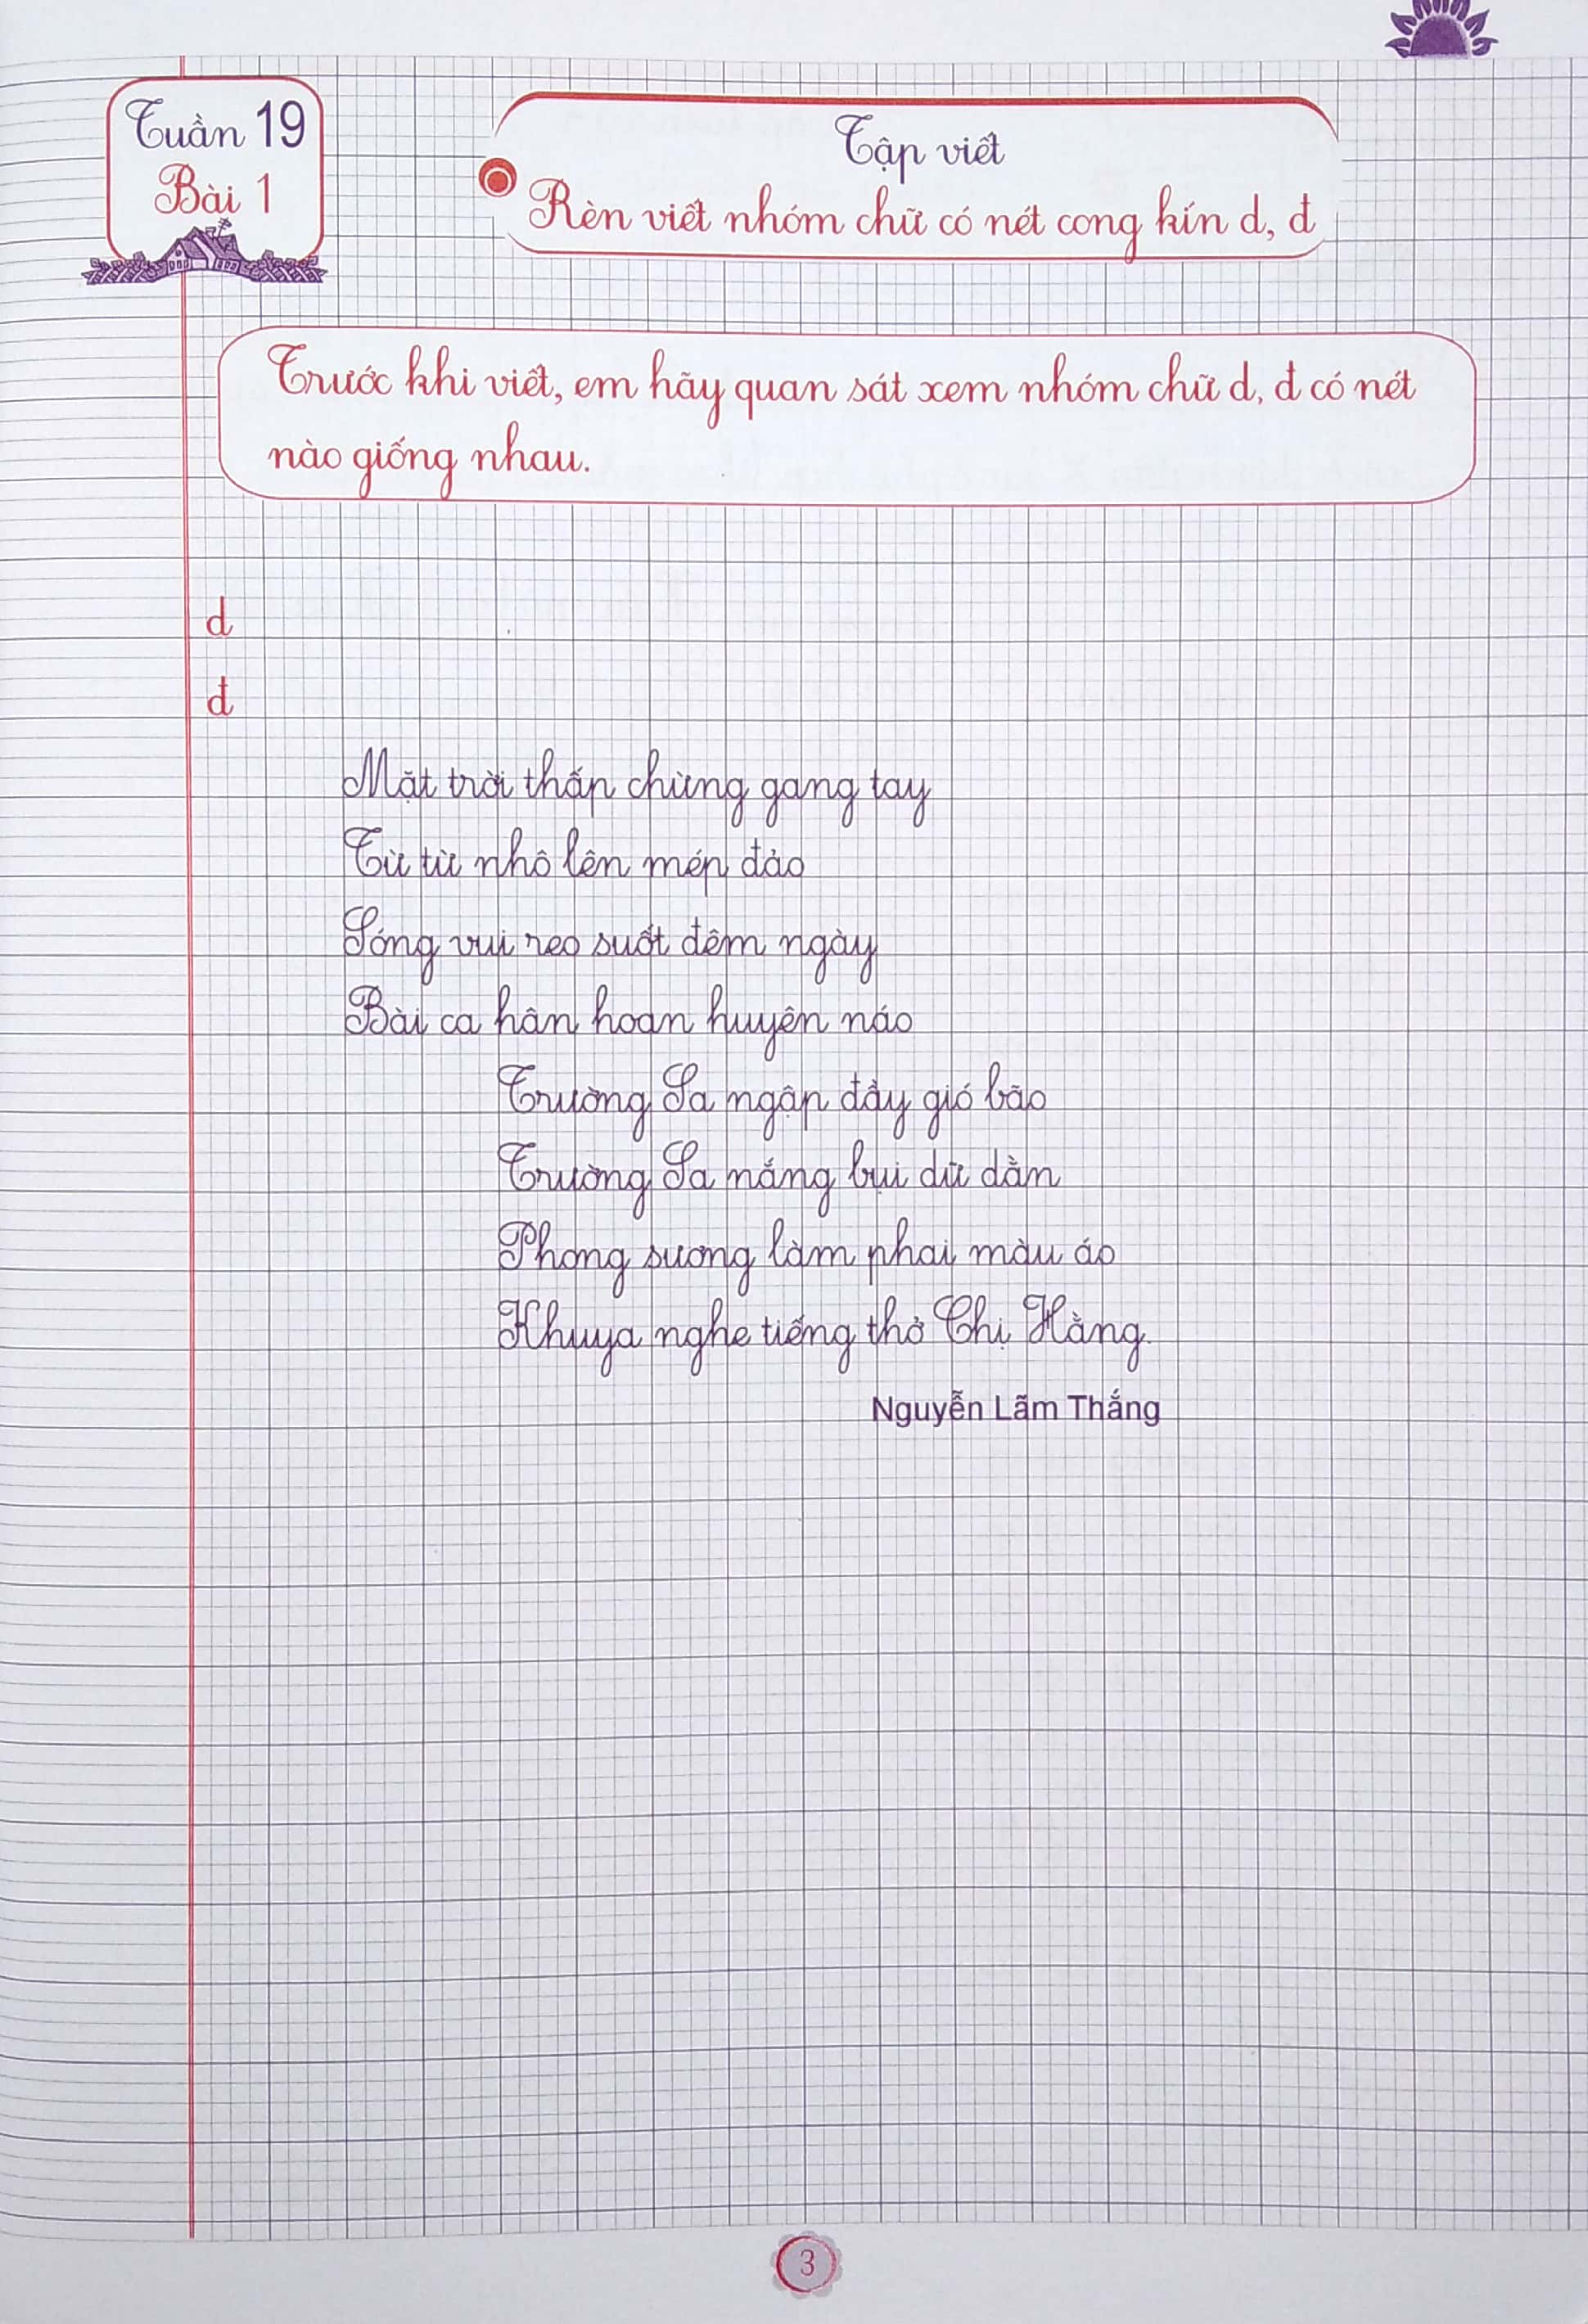 Tuần 19
Bài 1
Tập viết
Rèn viết nhóm chữ có nét cong kín d, đ
Trước khi viết, em hãy quan sát xem nhóm chữ d, đ có nét
nào giống nhau.
d
đ
Mặt trời thấp chừng gang tay
Từ từ nhô lên mép đảo
Sóng vui reo suốt đêm ngày
Bài ca hân hoan huyên náo
Trường Sa ngập đầy gió bão
Trường Sa nắng bụi dữ dằn
Phong sương làm phai màu áo
Khuya nghe tiếng thở Chị Hằng.
Nguyễn Lãm Thắng
3